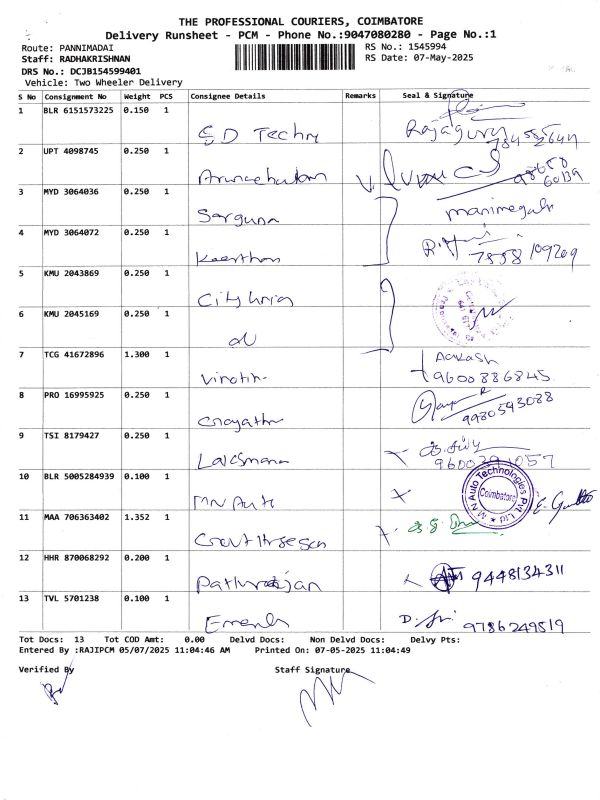 THE PROFESSIONAL COURIERS, COIMBATORE
Delivery Runsheet - PCM - Phone No.:9047080280 - Page No.:1
Route: PANNIMADAI RS No.: 1545994
Staff: RADHAKRISHNAN RS Date: 07-May-2025
DRS No.: DCJB154599401
Vehicle: Two Wheeler Delivery
S No Consignment No Weight PCS Consignee Details Remarks Seal & Signature
1 BLR 6151573225 0.150 1 Rajaguru
2 UPT 4098745 0.250 1 Arunachalam 98658
60139
3 MYD 3064036 0.250 1 Sarguna manimegala
4 MYD 3064072 0.250 1 Keerthan
5 KMU 2043869 0.250 1
6 KMU 2045169 0.250 1
7 TCG 41672896 1.300 1 Vinoth Aakash
9600886845
8 PRO 16995925 0.250 1 Gayathri 9980593088
9 TSI 8179427 0.250 1 Laksmana
10 BLR 5005284939 0.100 1 MN Auto M N Auto Technologies Pvt Ltd Coimbatore
11 MAA 706363402 1.352 1
12 HHR 870068292 0.200 1 9448134311
13 TVL 5701238 0.100 1 9786249519
Tot Docs: 13 Tot COD Amt: 0.00 Delvd Docs: Non Delvd Docs: Delvy Pts:
Entered By :RAJIPCM 05/07/2025 11:04:46 AM Printed On: 07-05-2025 11:04:49
Verified By Staff Signature